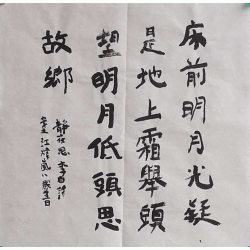 床前明月光疑
是地上霜舉頭
望明月低頭思
故鄉
靜夜思 李白詩
江 嵐八歲書